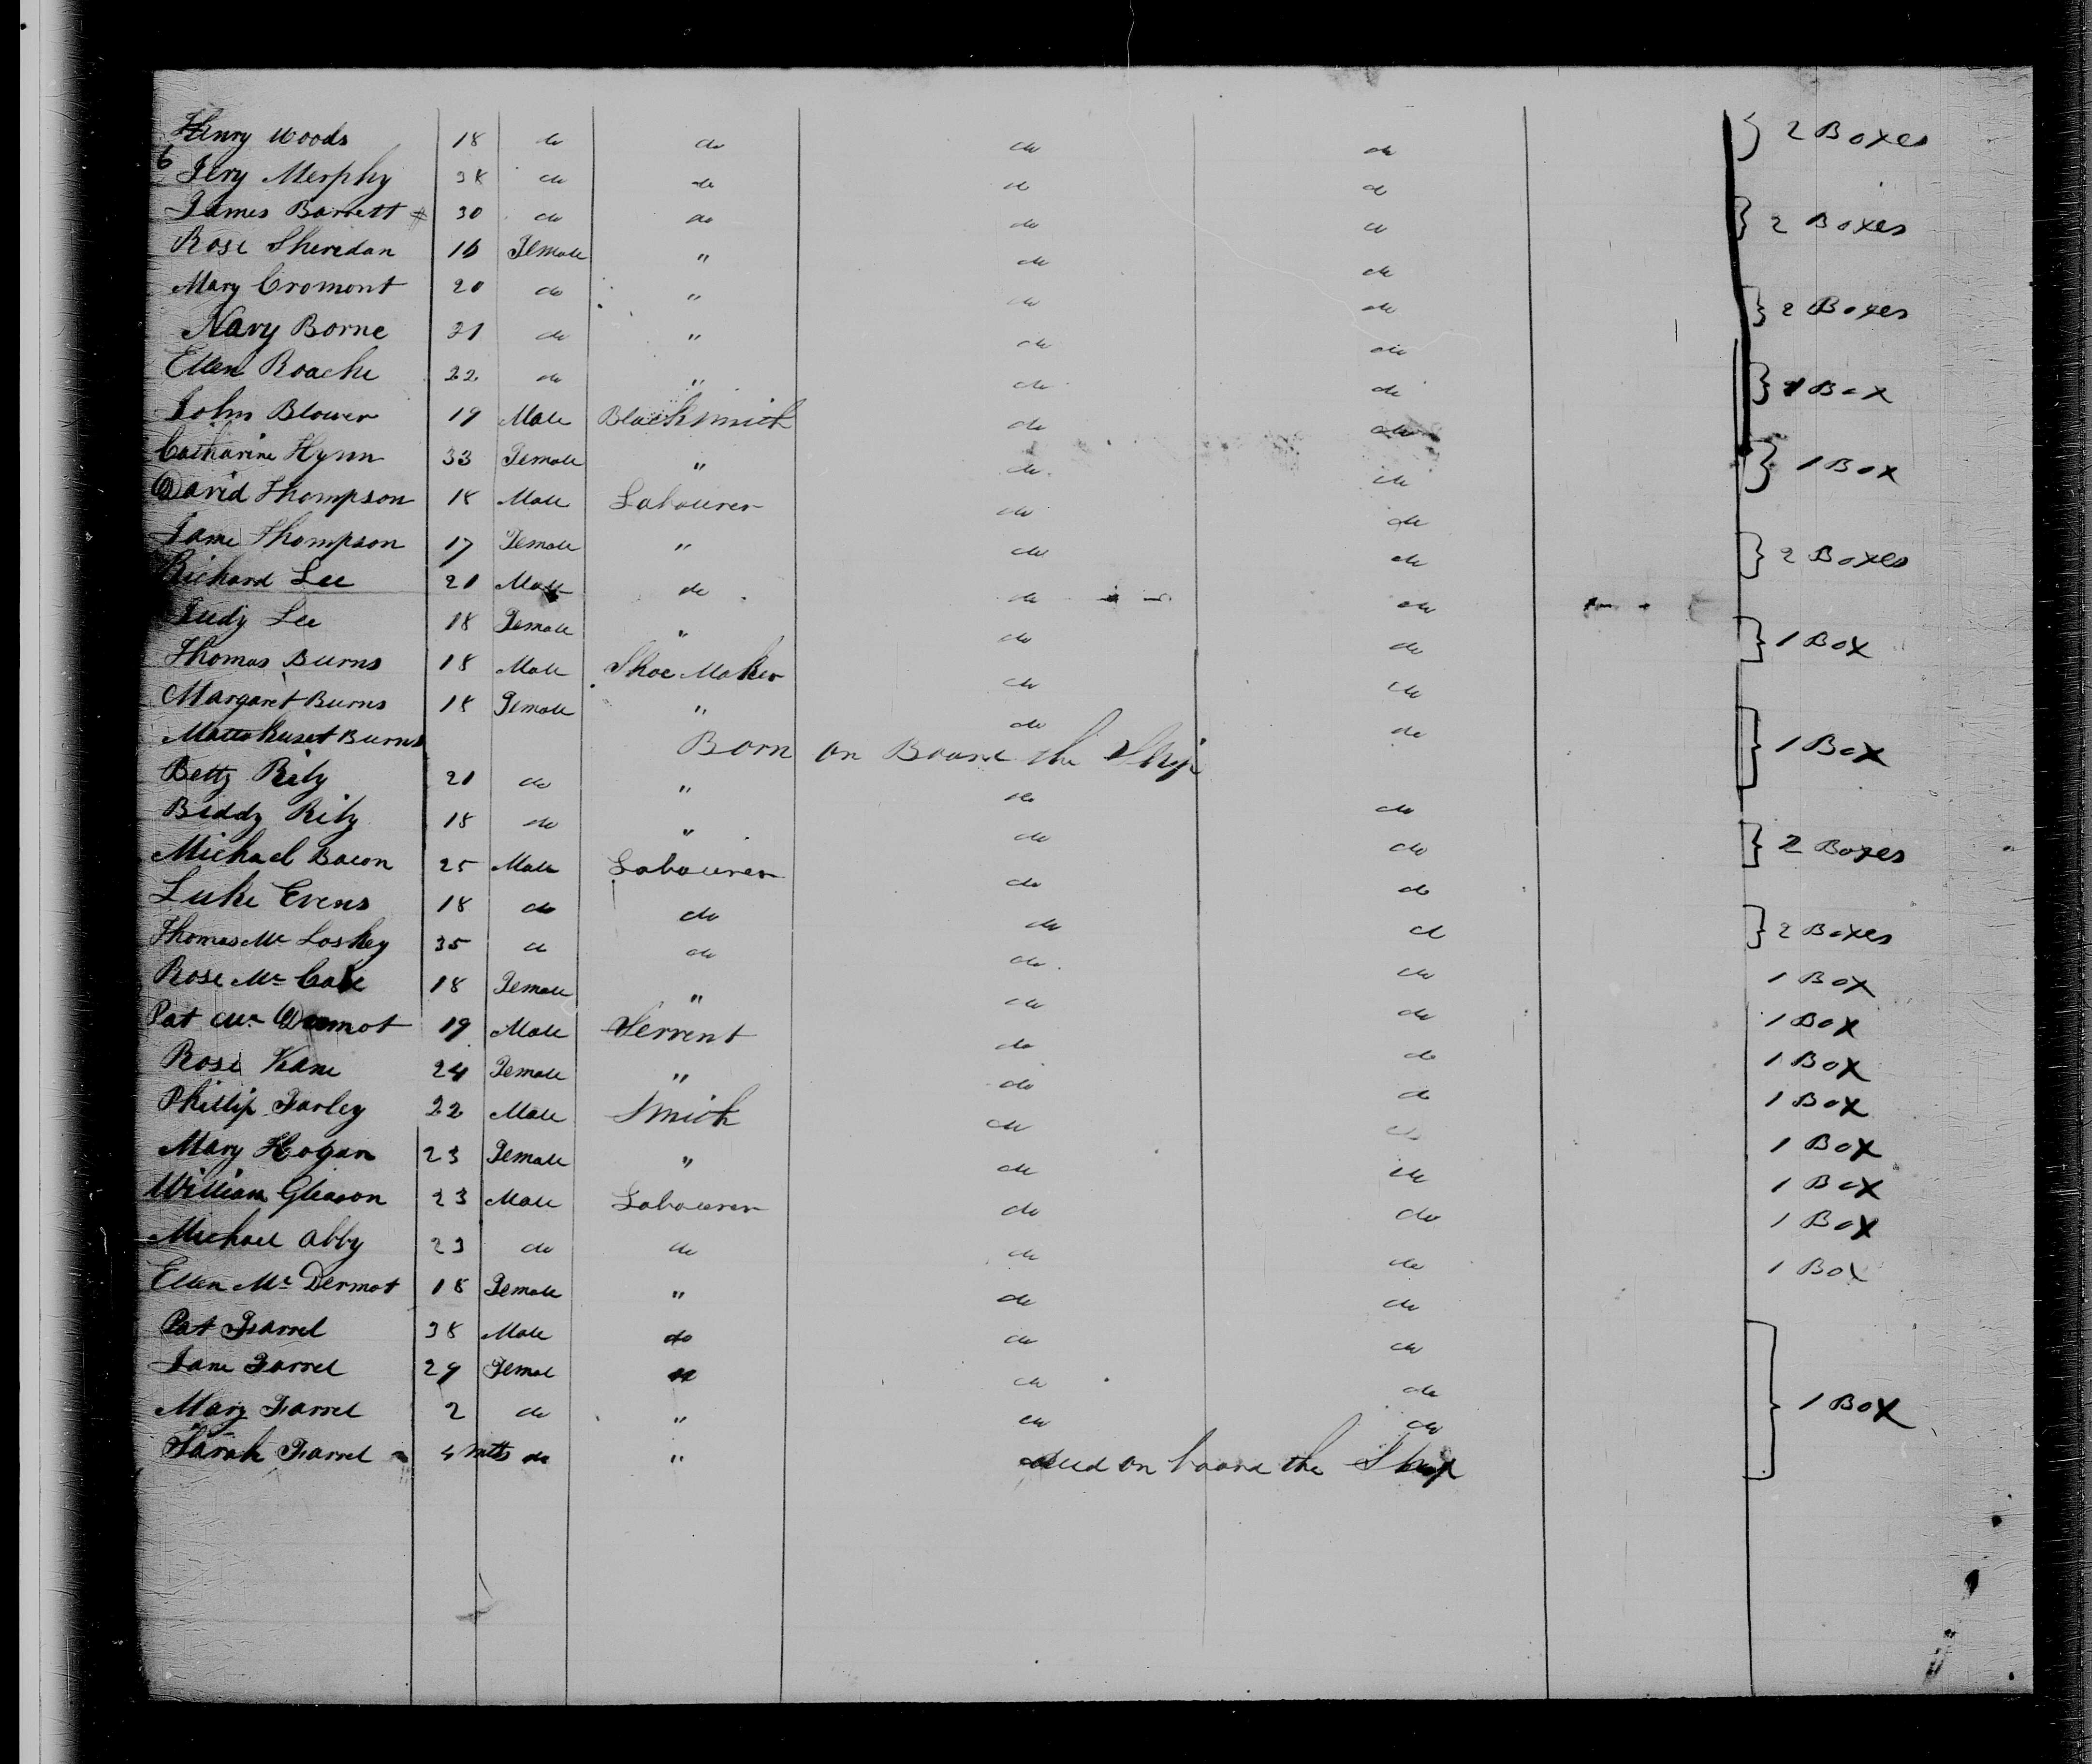 Henry Woods 18 do do do do } 2 Boxes
6
Jery Merphy 38 do do do do
James Barrett # 30 do do do do } 2 Boxes
Rose Sheridan 16 Female " do do
Mary Cromont 20 do " do do } 2 Boxes
Nary Borne 21 do " do do
Ellen Roache 22 do " do do } 1 Box
John Blower 19 Male Blacksmith do do
Catharine Hynn 33 Female " do do } 1 Box
David Thompson 18 Male Labourer do do
Jane Thompson 17 Female " do do } 2 Boxes
Richard Lee 21 Male do do do
Judy Lee 18 Female " do do } 1 Box
Thomas Burns 18 Male Shoe Maker do do
Margaret Burns 18 Female " do do
Burns Born on Board the Ship } 1 Box
Betty Rily 21 do " do do
Biddy Rily 18 do " do do } 2 Boxes
Michael Bacon 25 Male Labourer do do
Luke Evens 18 do do do do } 2 Boxes
Thomas Mc Loskey 35 do do do do
Rose Mc Cabe 18 Female " do do 1 Box
Pat Mc Dermot 19 Male Servent do do 1 Box
Rose Kane 24 Female " do do 1 Box
Phillip Farley 22 Male Smith do do 1 Box
Mary Hogan 23 Female " do do 1 Box
William Gleason 23 Male Labourer do do 1 Box
Michael Abby 23 do do do do 1 Box
Ellen Mc Dermot 18 Female " do do 1 Box
Pat Farrel 38 Male do do do
Jane Farrel 29 Femal " do do
Mary Farrel 2 do " do do } 1 Box
Sarah Farrel 4 mths do " died on board the Ship